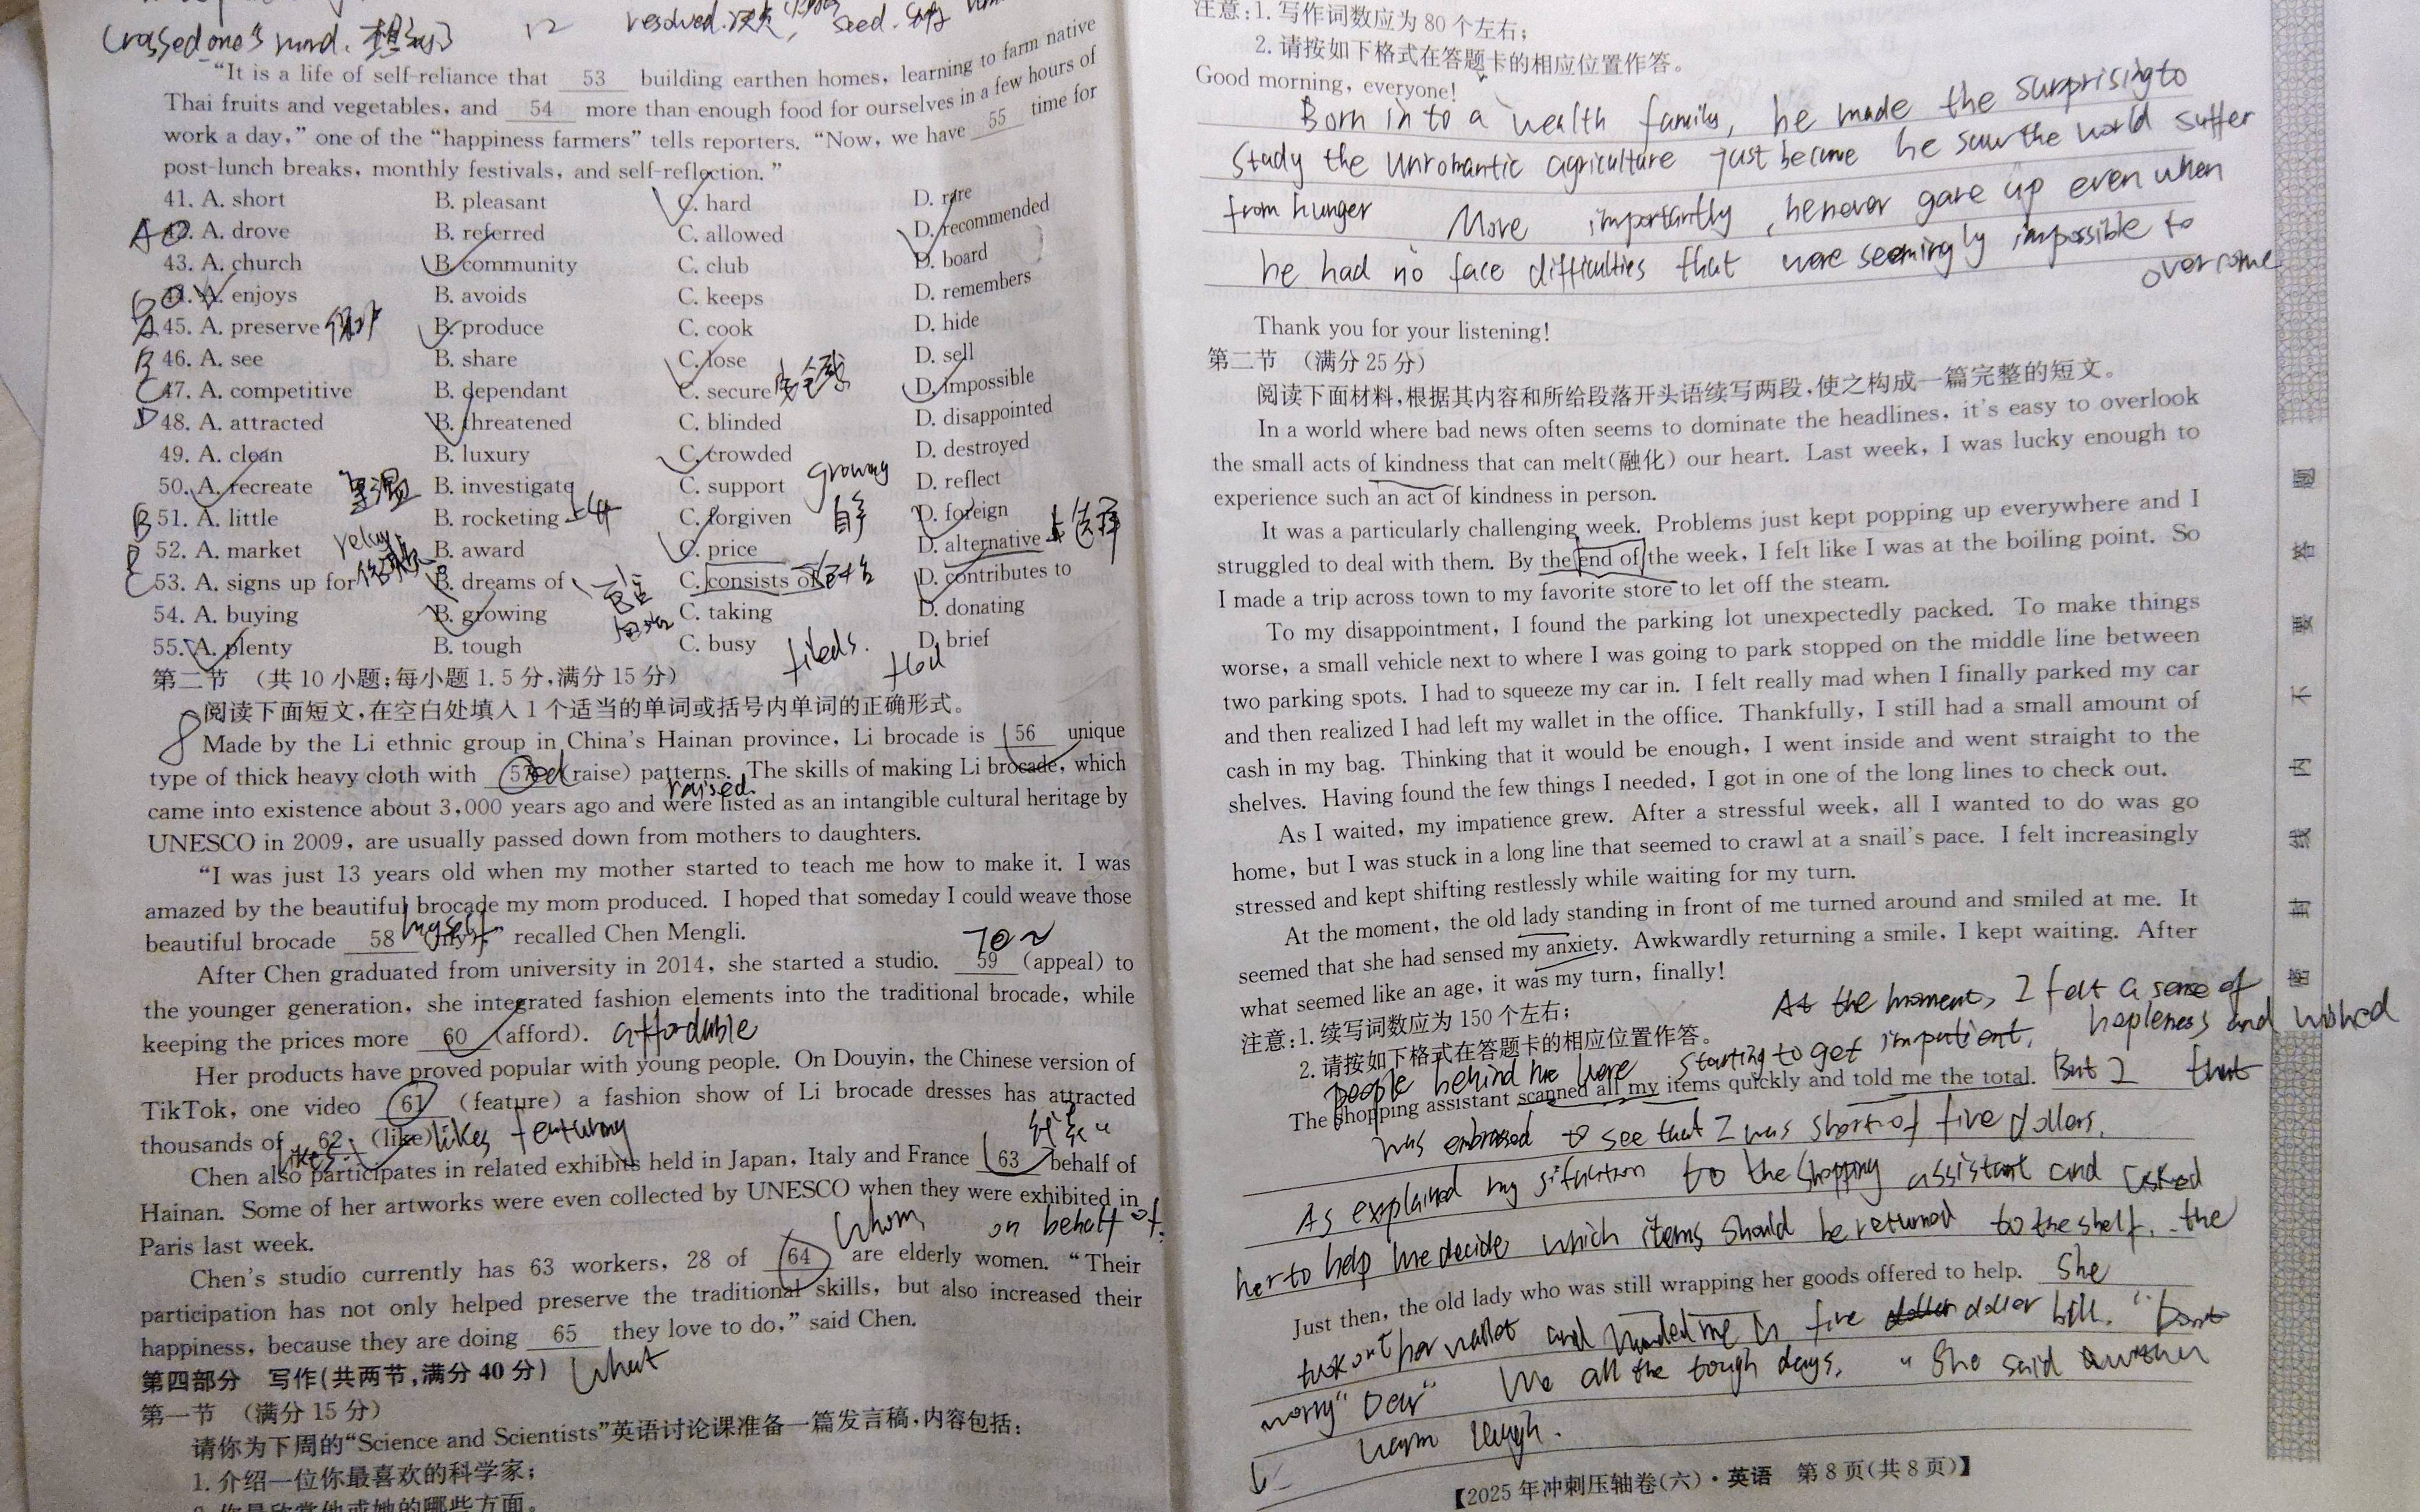 resolved. seed.
"It is a life of self-reliance that 53 building earthen homes, learning to farm native
Thai fruits and vegetables, and 54 more than enough food for ourselves in a few hours of
work a day," one of the "happiness farmers" tells reporters. "Now, we have 55 time for
post-lunch breaks, monthly festivals, and self-reflection."
41. A. short B. pleasant C. hard D. rare
42. A. drove B. referred C. allowed D. recommended
43. A. church B. community C. club D. board
44. A. enjoys B. avoids C. keeps D. remembers
A 45. A. preserve B. produce C. cook D. hide
B 46. A. see B. share C. lose D. sell
C 47. A. competitive B. dependant C. secure 安全感 D. impossible
D 48. A. attracted B. threatened C. blinded D. disappointed
49. A. clean B. luxury C. crowded D. destroyed
50. A. recreate B. investigate C. support D. reflect
growing
B 51. A. little B. rocketing 上升 C. forgiven D. foreign
52. A. market B. award C. price D. alternative 选择
C 53. A. signs up for B. dreams of C. consists of D. contributes to
54. A. buying B. growing C. taking D. donating
55. A. plenty B. tough C. busy D. brief
第二节 (共 10 小题;每小题 1.5 分,满分 15 分)
阅读下面短文,在空白处填入 1 个适当的单词或括号内单词的正确形式。
Made by the Li ethnic group in China's Hainan province, Li brocade is 56 unique
type of thick heavy cloth with 57 (raise) patterns. The skills of making Li brocade, which
raised
came into existence about 3,000 years ago and were listed as an intangible cultural heritage by
UNESCO in 2009, are usually passed down from mothers to daughters.
"I was just 13 years old when my mother started to teach me how to make it. I was
amazed by the beautiful brocade my mom produced. I hoped that someday I could weave those
beautiful brocade 58 (my)," recalled Chen Mengli.
myself
After Chen graduated from university in 2014, she started a studio. 59 (appeal) to
the younger generation, she integrated fashion elements into the traditional brocade, while
keeping the prices more 60 (afford). affordable
Her products have proved popular with young people. On Douyin, the Chinese version of
TikTok, one video 61 (feature) a fashion show of Li brocade dresses has attracted
thousands of 62 (like). likes featuring
likes
Chen also participates in related exhibits held in Japan, Italy and France 63 behalf of
Hainan. Some of her artworks were even collected by UNESCO when they were exhibited in
Paris last week. whom on behalf of.
Chen's studio currently has 63 workers, 28 of 64 are elderly women. "Their
participation has not only helped preserve the traditional skills, but also increased their
happiness, because they are doing 65 they love to do," said Chen.
what
第四部分 写作(共两节,满分 40 分)
第一节 (满分 15 分)
请你为下周的"Science and Scientists"英语讨论课准备一篇发言稿,内容包括:
1. 介绍一位你最喜欢的科学家;
2. 你最欣赏他或她的哪些方面。
注意:1. 写作词数应为 80 个左右;
2. 请按如下格式在答题卡的相应位置作答。
Good morning, everyone!
Born into a wealth family, he made the surprising to
study the unromantic agriculture just because he saw the world suffer
from hunger More importantly, he never gave up even when
he had no face difficulties that were seemingly impossible to
overcome
Thank you for your listening!
第二节 (满分 25 分)
阅读下面材料,根据其内容和所给段落开头语续写两段,使之构成一篇完整的短文。
In a world where bad news often seems to dominate the headlines, it's easy to overlook
the small acts of kindness that can melt(融化) our heart. Last week, I was lucky enough to
experience such an act of kindness in person.
It was a particularly challenging week. Problems just kept popping up everywhere and I
struggled to deal with them. By the end of the week, I felt like I was at the boiling point. So
I made a trip across town to my favorite store to let off the steam.
To my disappointment, I found the parking lot unexpectedly packed. To make things
worse, a small vehicle next to where I was going to park stopped on the middle line between
two parking spots. I had to squeeze my car in. I felt really mad when I finally parked my car
and then realized I had left my wallet in the office. Thankfully, I still had a small amount of
cash in my bag. Thinking that it would be enough, I went inside and went straight to the
shelves. Having found the few things I needed, I got in one of the long lines to check out.
As I waited, my impatience grew. After a stressful week, all I wanted to do was go
home, but I was stuck in a long line that seemed to crawl at a snail's pace. I felt increasingly
stressed and kept shifting restlessly while waiting for my turn.
At the moment, the old lady standing in front of me turned around and smiled at me. It
seemed that she had sensed my anxiety. Awkwardly returning a smile, I kept waiting. After
what seemed like an age, it was my turn, finally!
At the moment, I felt a sense of
注意:1. 续写词数应为 150 个左右;
hopleness and wished
2. 请按如下格式在答题卡的相应位置作答。
people behind me were starting to get impatient.
The shopping assistant scanned all my items quickly and told me the total. But I that
was embrossed to see that I was short of five dollars.
As explained my situation to the shopping assistant and asked
her to help me decide which items should be returned to the shelf. the
Just then, the old lady who was still wrapping her goods offered to help. She
took out her wallet and handed me a five dollar bill. "Don't
worry" Dear" We all the tough days. " She said
warm laugh.
【2025 年冲刺压轴卷(六)·英语 第 8 页(共 8 页)】
密 封 线 内 不 要 答 题